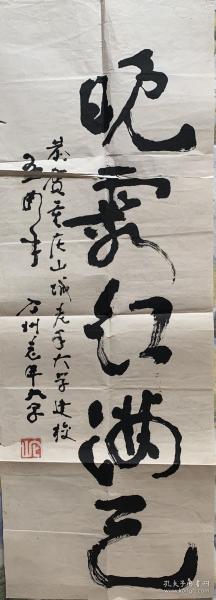 晚霞红满巴
恭贺重庆山城老年大学建校
五周年
万州老年大学
孔夫子旧书网